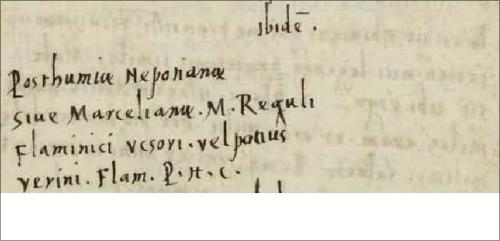 ibidē.
Posthumiæ Nepotianæ
siue Marcelianæ. M. Reguli
Flaminici vcsori. vel potius
verini. Flam. P. H. C.